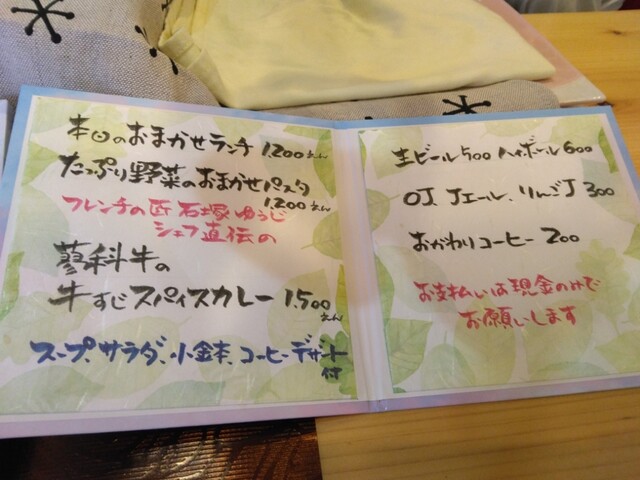 本日のおまかせランチ 1,200えん
たっぷり野菜のおまかせパスタ
1,200えん
フレンチの匠 石塚ゆうじ
シェフ直伝の
蓼科牛の
牛すじスパイスカレー 1,500えん
スープ、サラダ、小鉢、コーヒー、デザート
付
生ビール500 ハイボール600
OJ、Jエール、りんごJ 300
おかわりコーヒー 200
お支払いは現金のみで
お願いします